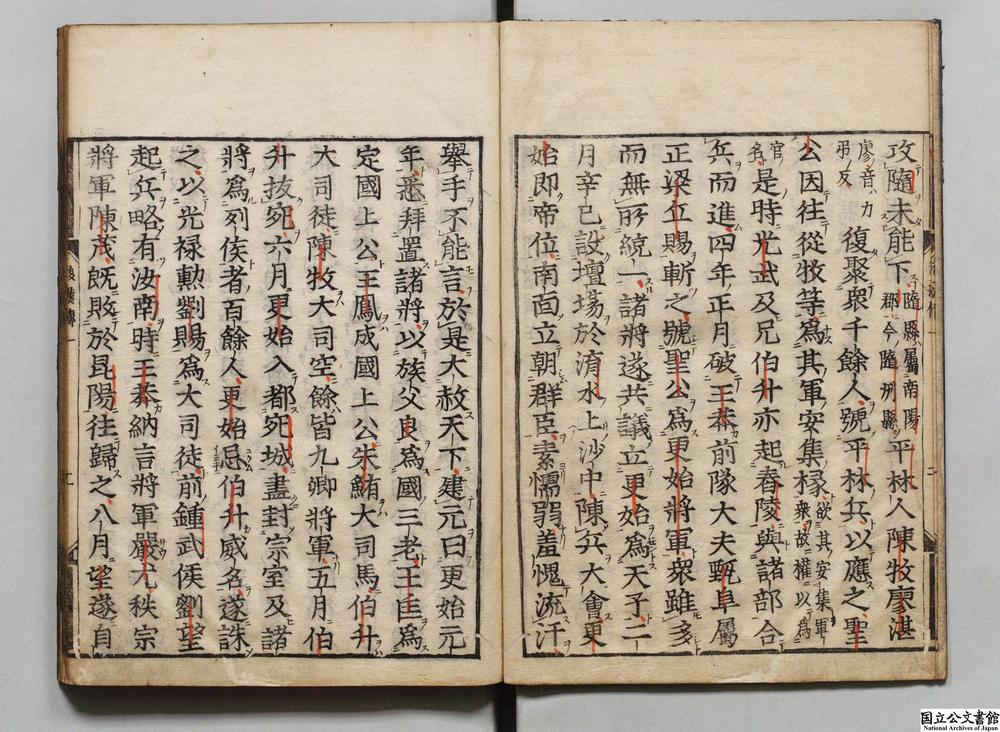 攻隨未能下隨縣屬南陽郡今隨州縣平林人陳牧廖湛
廖音力弔反復聚衆千餘人號平林兵以應之聖
公因往從牧等爲其軍安集掾欲其安集軍衆故權以爲
官名是時光武及兄伯升亦起舂陵與諸部合
兵而進四年正月破王莽前隊大夫甄阜屬
正梁丘賜斬之號聖公爲更始將軍衆雖多
而無所統一諸將遂共議立更始爲天子二
月辛巳設壇場於淯水上沙中陳兵大會更
始即帝位南面立朝群臣素懦弱羞愧流汗
擧手不能言於是大赦天下建元曰更始元
年悉拜置諸將以族父良爲國三老王匡爲
定國上公王鳳成國上公朱鮪大司馬伯升
大司徒陳牧大司空餘皆九卿將軍五月伯
升拔宛六月更始入都宛城盡封宗室及諸
將爲列侯者百餘人更始忌伯升威名遂誅
之以光禄勲劉賜爲大司徒前鍾武侯劉望
起兵略有汝南時王莽納言將軍嚴尤秩宗
將軍陳茂既敗於昆陽往歸之八月望遂自
後漢傳一
国立公文書館
National Archives of Japan